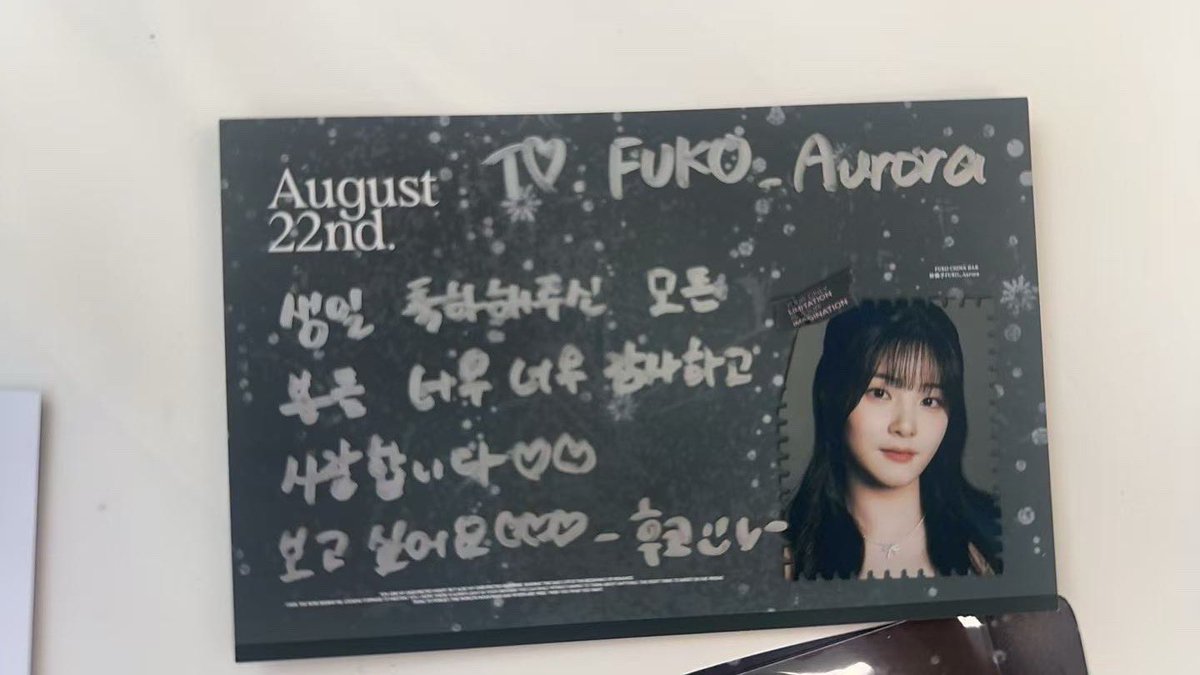 TO FUKO_Aurora
August
22nd.
생일 축하해주신 모든
분들 너무 너무 감사하고
사랑합니다♡♡
보고 싶어요♡♡♡ - 후코
FUKO CHINA BAR
FUKO_Aurora
LIMITATION
IMAGINATION